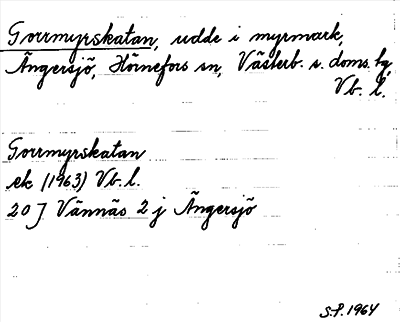 Gorrmyrskatan, udde i myrmark,
Ängersjö, Hörnefors sn, Västerb. s. doms. hg,
Vb. l.
Gorrmyrskatan
ek (1963) Vb. l.
20 J Vännäs 2 j Ängersjö
S.P. 1964